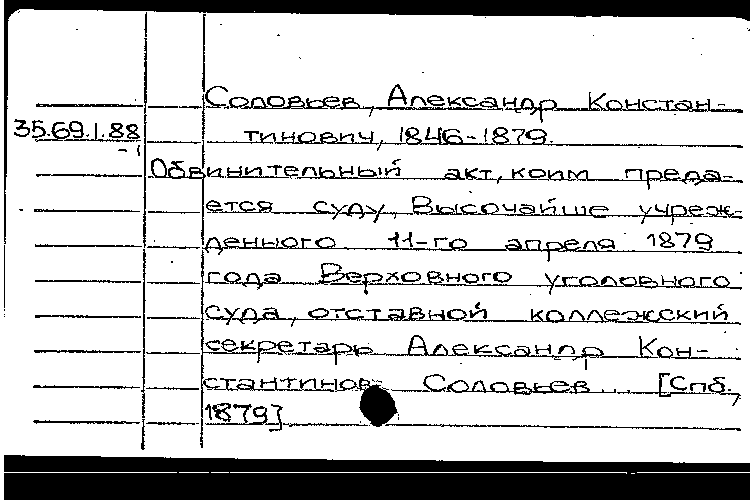 Соловьев, Александр Констан-
35.69.1.88 тинович, 1846-1879.
-1
Обвинительный акт, коим преда-
ется суду, Высочайше учреж-
денного 11-го апреля 1879
года Верховного уголовного
суда, отставной коллежский
секретарь Александр Кон-
стантинов- Соловьев... [Спб.,
1879]